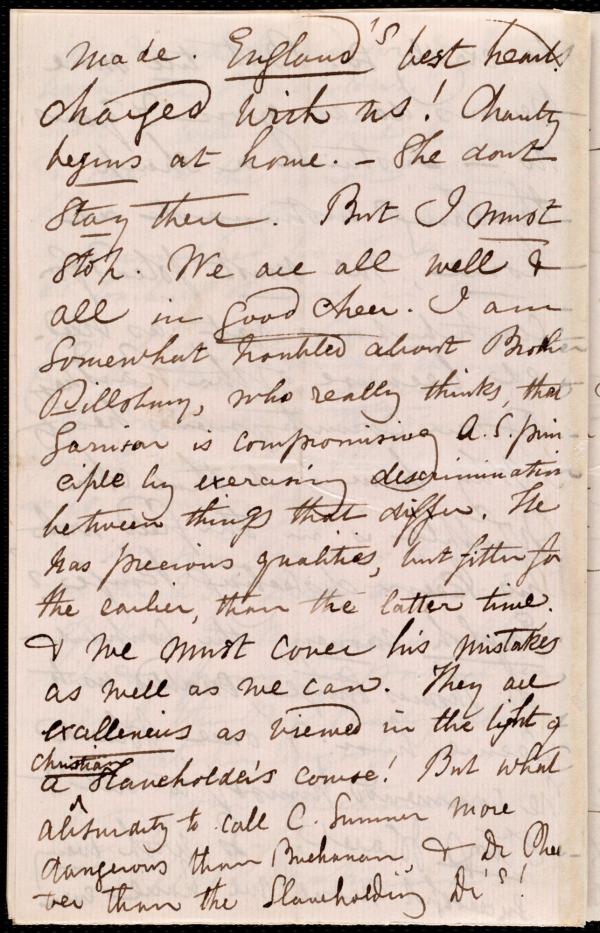 made. England's best hearts
charged with us! Charity
begins at home. – She dont
stay there. But I must
stop. We are all well &
all in good cheer. I am
somewhat troubled about Brother
Pillsbury, who really thinks, that
Garrison is compromising A.S. prin
ciple by exercising descrimination
between things that differ. He
has precious qualities, but fitter for
the earlier, than the latter time.
& we must cover his mistakes
as well as we can. They are
excellencies as viewed in the light of
Christian
a Slaveholder's course! But what
absurdity to call C. Sumner more
dangerous than Buchanan, & Dr Chee
ver than the Slaveholding Dr's!